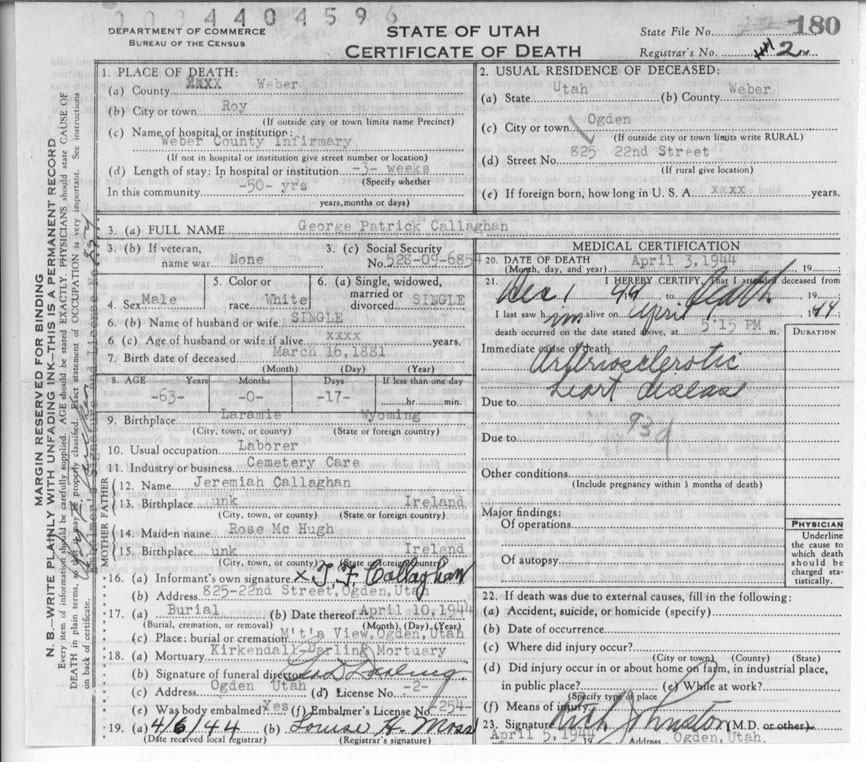 0004404596
DEPARTMENT OF COMMERCE
BUREAU OF THE CENSUS
STATE OF UTAH
CERTIFICATE OF DEATH
State File No. 180
Registrar's No. 2
MARGIN RESERVED FOR BINDING
N. B.—WRITE PLAINLY WITH UNFADING INK—THIS IS A PERMANENT RECORD
Every item of information should be carefully supplied. AGE should be stated EXACTLY. PHYSICIANS should state CAUSE OF
DEATH in plain terms, so that it may be properly classified. Exact statement of OCCUPATION is very important. See instructions
on back of certificate.
1. PLACE OF DEATH:
(a) County XXXX Weber
(b) City or town Roy
(If outside city or town limits name Precinct)
(c) Name of hospital or institution:
Weber County Infirmary
(If not in hospital or institution give street number or location)
(d) Length of stay: In hospital or institution -3- weeks
(Specify whether
In this community -50- yrs
years, months or days)
2. USUAL RESIDENCE OF DECEASED:
(a) State Utah (b) County Weber
(c) City or town Ogden
(If outside city or town limits write RURAL)
(d) Street No. 825 22nd Street
(If rural give location)
(e) If foreign born, how long in U. S. A. xxxx years.
3. (a) FULL NAME George Patrick Callaghan
3. (b) If veteran, name war None
3. (c) Social Security No. 528-09-6854
4. Sex Male
5. Color or race White
6. (a) Single, widowed, married or divorced SINGLE
6. (b) Name of husband or wife SINGLE
6. (c) Age of husband or wife if alive xxxx years.
7. Birth date of deceased March 16, 1881
(Month) (Day) (Year)
8. AGE Years Months Days If less than one day
-63- -0- -17- hr. min.
9. Birthplace Laramie Wyoming
(City, town, or county) (State or foreign country)
10. Usual occupation Laborer
11. Industry or business Cemetery Care
FATHER
12. Name Jeremiah Callaghan
13. Birthplace unk Ireland
(City, town, or county) (State or foreign country)
MOTHER
14. Maiden name Rose Mc Hugh
15. Birthplace unk Ireland
(City, town, or county) (State or foreign country)
16. (a) Informant's own signature x J. F. Callaghan
(b) Address 825-22nd Street, Ogden, Utah
17. (a) Burial (b) Date thereof April 10, 1944
(Burial, cremation, or removal) (Month), (Day), (Year)
(c) Place: burial or cremation M't'a View, Ogden, Utah
18. (a) Mortuary Kirkendall-Darling Mortuary
(b) Signature of funeral director Darling
(c) Address Ogden Utah (d) License No. -2-
(e) Was body embalmed? Yes (f) Embalmer's License No. 254-
19. (a) 4/6/44 (b) Louise H. Moss
(Date received local registrar) (Registrar's signature)
MEDICAL CERTIFICATION
20. DATE OF DEATH April 3, 1944
(Month, day, and year) 19
21. I HEREBY CERTIFY, That I attended deceased from
Dec 1 44 to Death 19
I last saw him alive on April 1944
death occurred on the date stated above, at 5:15 PM m.
DURATION
Immediate cause of death Arteriosclerotic
heart disease
Due to
Due to
Other conditions
(Include pregnancy within 3 months of death)
Major findings:
Of operations
Of autopsy
PHYSICIAN
Underline
the cause to
which death
should be
charged sta-
tistically.
22. If death was due to external causes, fill in the following:
(a) Accident, suicide, or homicide (specify)
(b) Date of occurrence
(c) Where did injury occur?
(City or town) (County) (State)
(d) Did injury occur in or about home on farm, in industrial place,
in public place? (e) While at work?
(Specify type of place
(f) Means of injury
23. Signature Johnston (M.D. or other)
April 5, 1944 19 Address Ogden, Utah.